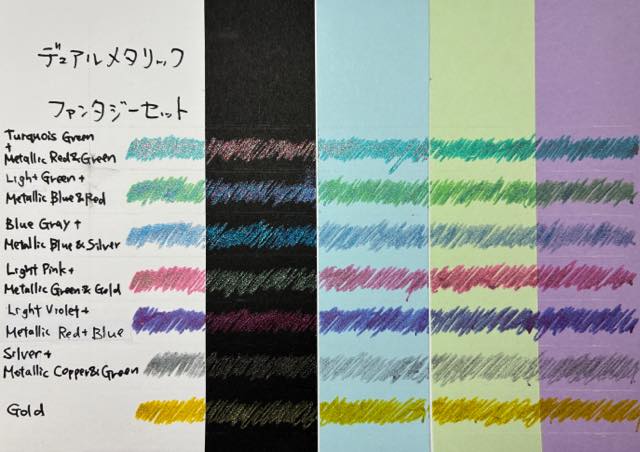 デュアルメタリック
ファンタジーセット
Turquois Green
+
Metallic Red&Green
Light Green +
Metallic Blue&Red
Blue Gray +
Metallic Blue & Silver
Light Pink +
Metallic Green & Gold
Light Violet +
Metallic Red + Blue
Silver +
Metallic Copper&Green
Gold